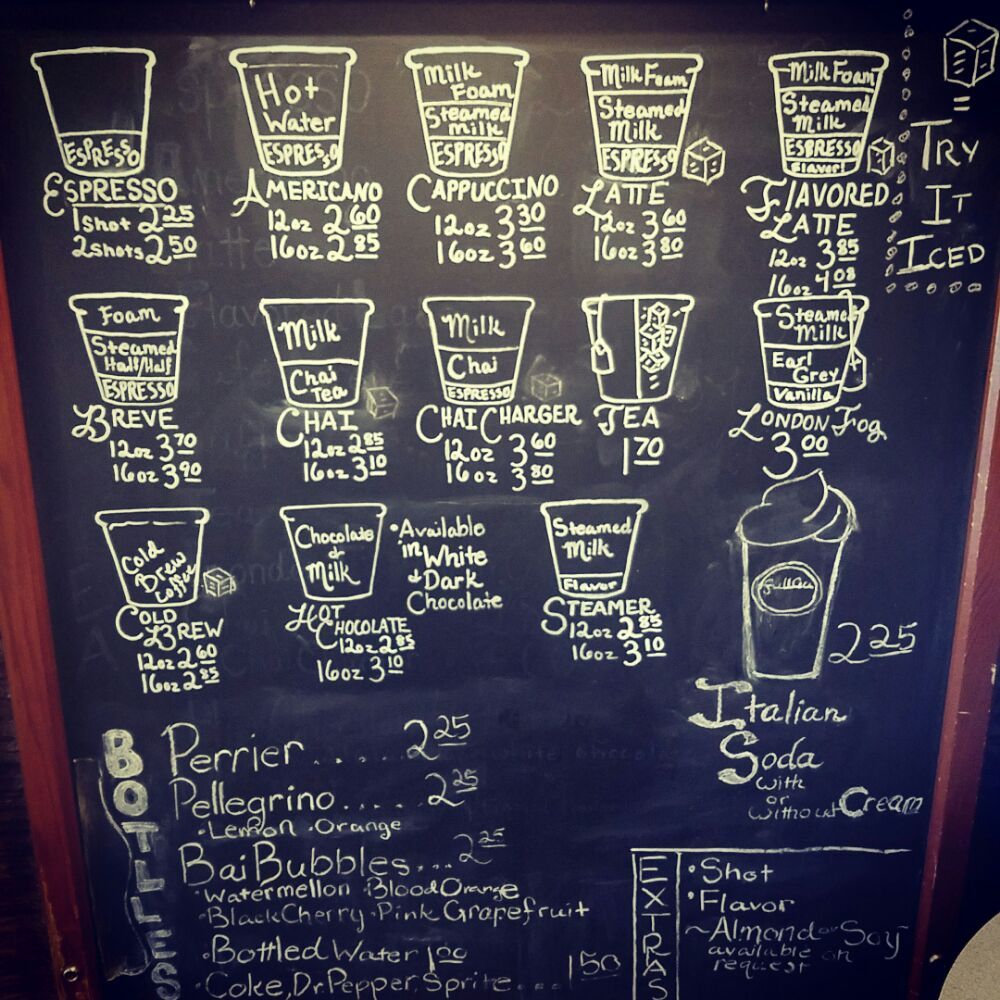 ESPRESSO
ESPRESSO
1shot 2.25
2shots 2.50
Hot
Water
ESPRESSO
AMERICANO
12oz 2.60
16oz 2.85
Milk
Foam
Steamed
milk
ESPRESSO
CAPPUCCINO
12oz 3.30
16oz 3.60
Milk Foam
Steamed
Milk
ESPRESSO
LATTE
12oz 3.60
16oz 3.80
Milk Foam
Steamed
Milk
ESPRESSO
Flavor
FLAVORED
LATTE
12oz 3.85
16oz 4.08
=
TRY
IT
ICED
Foam
Steamed
Half/Half
ESPRESSO
BREVE
12oz 3.70
16oz 3.90
Milk
Chai
Tea
CHAI
12oz 2.85
16oz 3.10
Milk
Chai
ESPRESSO
CHAI CHARGER
12oz 3.60
16oz 3.80
TEA
1.70
Steamed
Milk
Earl
Grey
Vanilla
LONDON Fog
3.00
Cold
Brew
Coffee
COLD
BREW
12oz 2.60
16oz 2.85
Chocolate
&
Milk
HOT
CHOCOLATE
12oz 2.85
16oz 3.10
•Available
in White
& Dark
Chocolate
Steamed
Milk
Flavor
STEAMER
12oz 2.85
16oz 3.10
2.25
Italian
Soda
with
or
without Cream
BOTLLES
Perrier...... 2.25
Pellegrino.... 2.25
•Lemon •Orange
Bai Bubbles... 2.25
•Watermellon •Blood Orange
•Black Cherry •Pink Grapefruit
•Bottled Water 1.00
•Coke, Dr. Pepper, Sprite... 1.50
EXTRAS
•Shot
•Flavor
~Almond or Soy~
available on
request